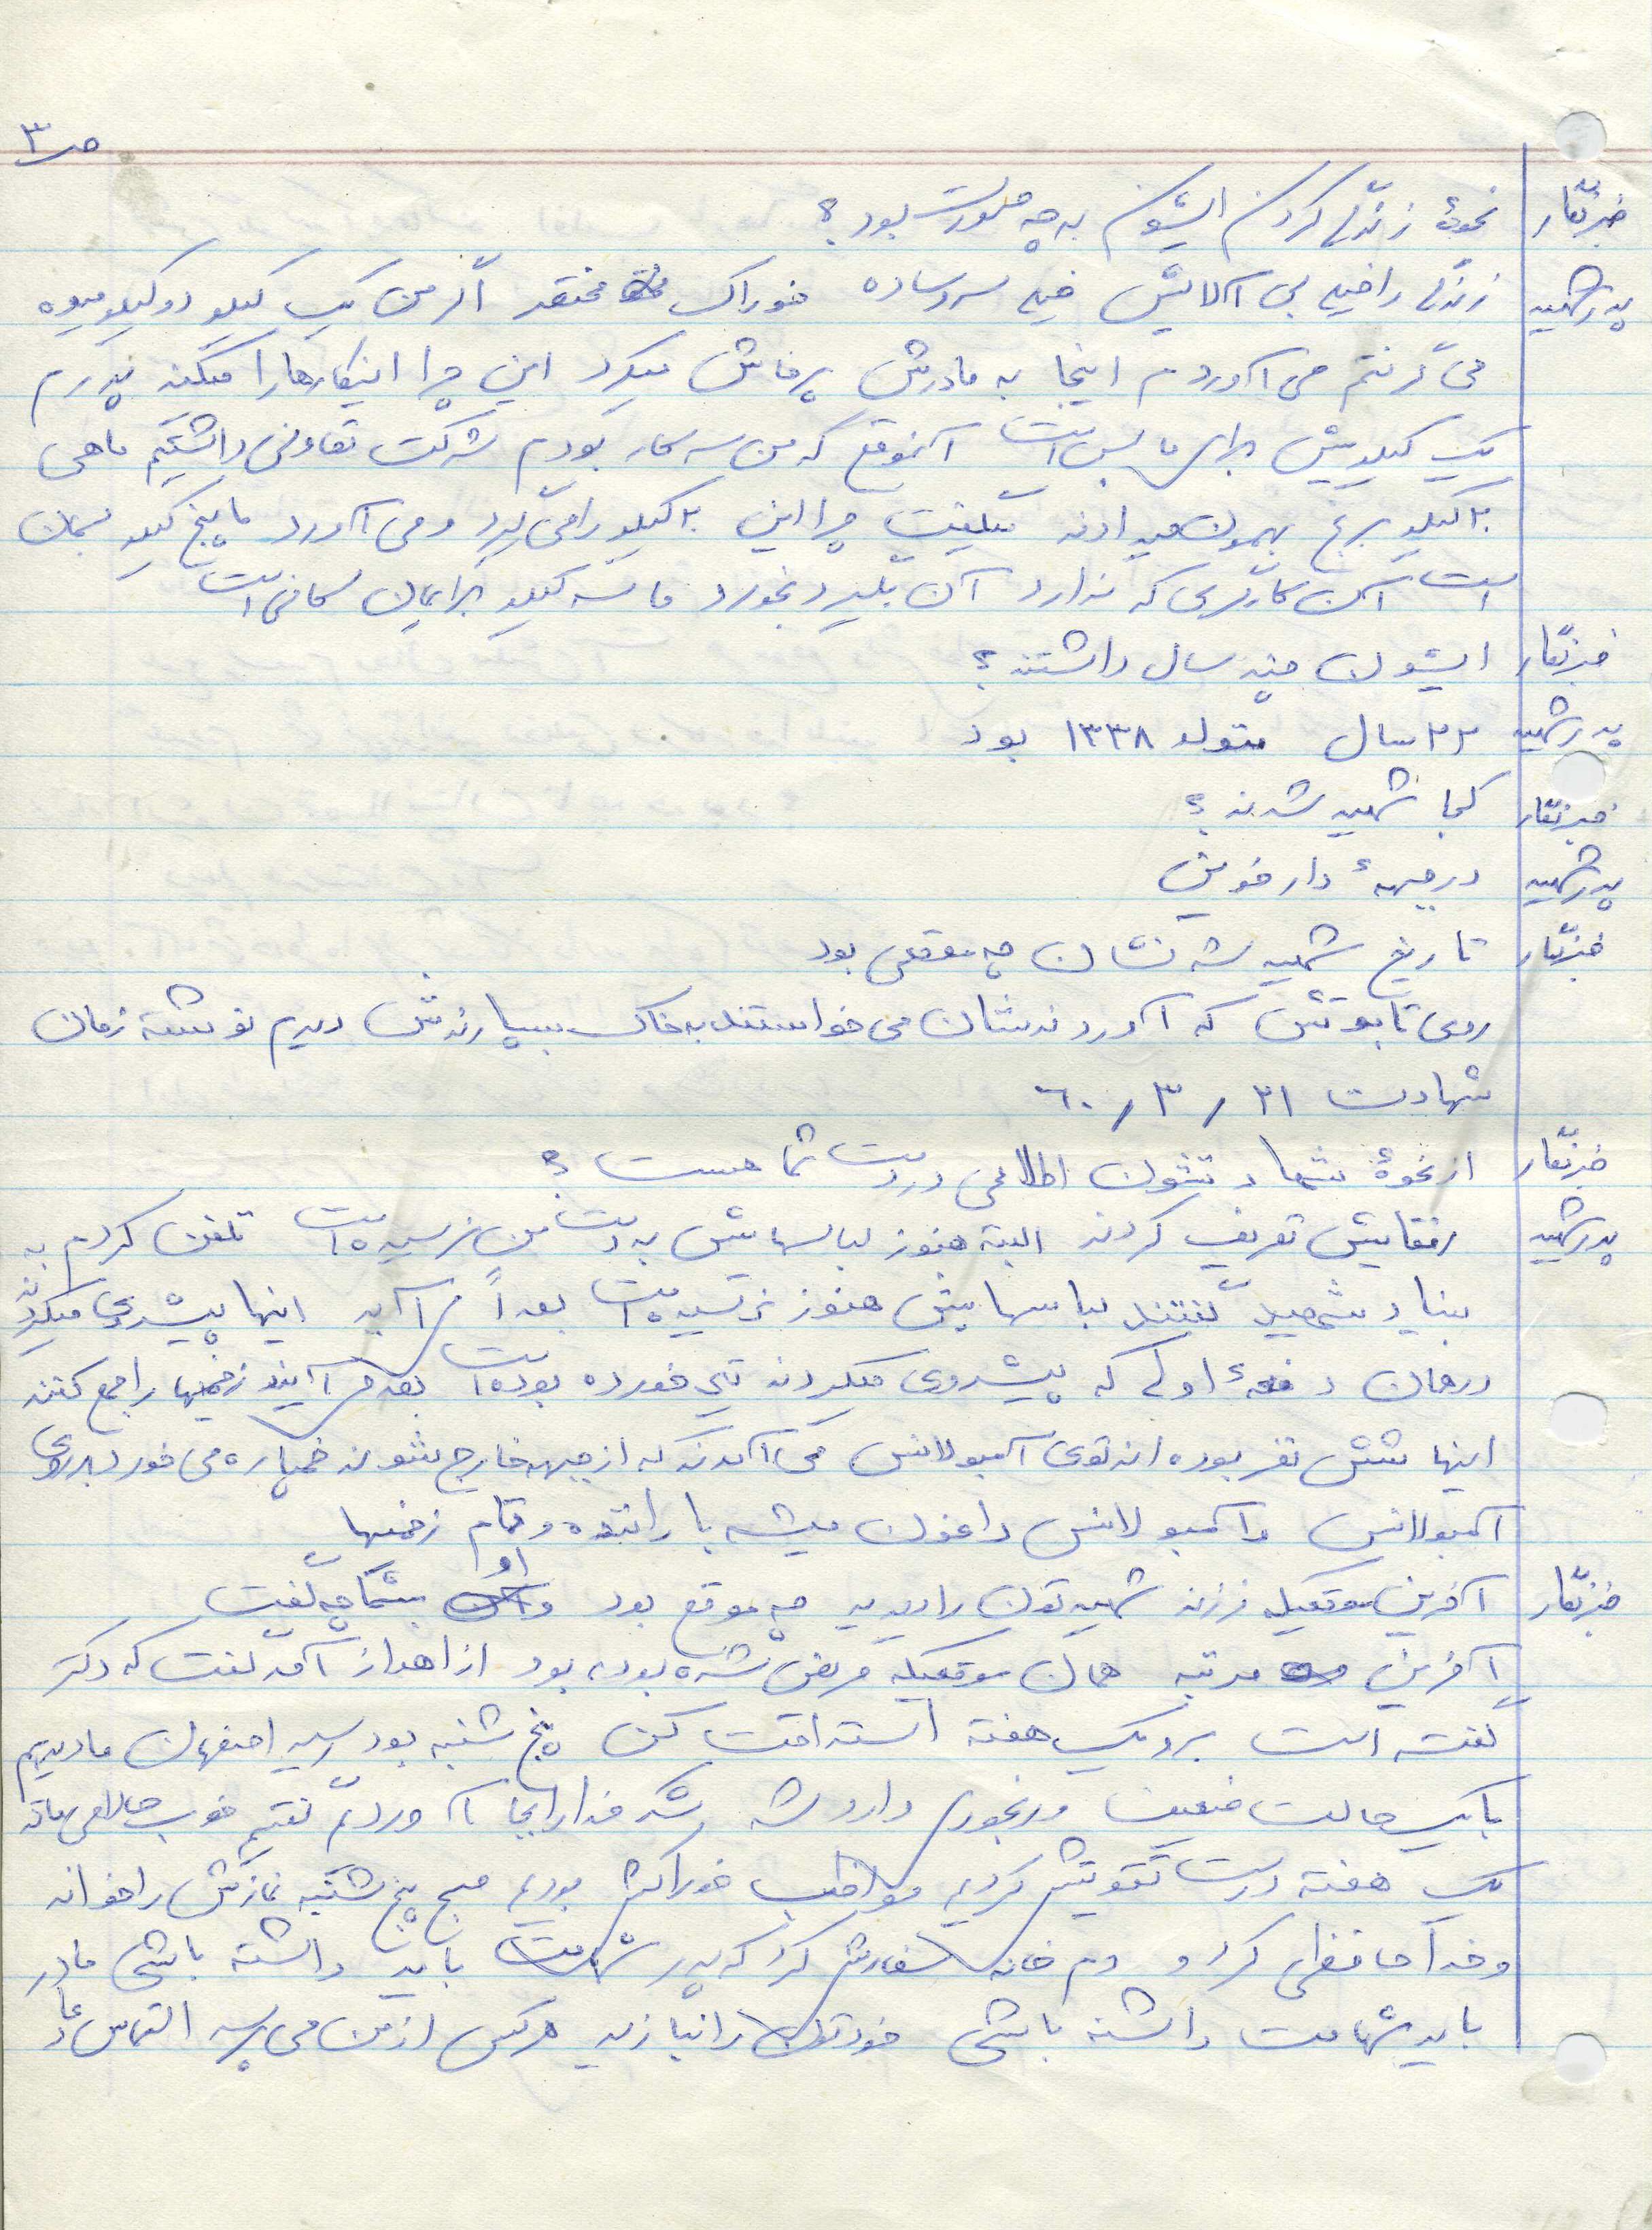 ص ۳
خبرنگار نحوهٔ زندگی کردن ایشون به چه صورت بود؟
پدر شهید زندگی را خیلی بی آلایش خیلی سرد ساده خوراک مختصر اگر من یک کیلو دو کیلو میوه
می گرفتم می آوردم اینجا به مادرش پرخاش میکرد این چرا اینکارها را میکند پدرم
یک کیلویش برای ما بس است آنموقع که من سر کار بودم شرکت تعاونی داشتیم ماهی
۲۰ کیلو برنج بهمون میدادند میگفت چرا این ۲۰ کیلو را می گیرد و می آورد ما پنج کیلو بسمان
است آن کارگری که ندارد آن بگیرد بخورد ما سه کیلو برایمان کافی است
خبرنگار ایشون چند سال داشتند؟
پدر شهید ۲۲ سال متولد ۱۳۳۸ بود
خبرنگار کجا شهید شدند؟
پدر شهید در جبههٔ دارخوین
خبرنگار تاریخ شهید شدنشان چه موقعی بود
روی تابوتش که آوردندشان می خواستند به خاک بسپارندش دیدم نوشته زمان
شهادت ۳۱ / ۳ / ۶۰
خبرنگار از نحوهٔ شهادتشون اطلاعی در دست شما هست؟
پدر شهید رفقایش تعریف کردند البته هنوز لباسهایش به دست من نرسیده است تلفن کردم به
بنیاد شهید گفتند لباسهایش هنوز نرسیده است بعداً می آید اینها پیشروی میکردند
در همان دفعهٔ اولی که پیشروی میکردند تیر خورده بوده است بعد می آیند زخمیها را جمع کنند
اینها شش نفر بوده اند توی آمبولانس می آمدند که از جبهه خارج بشوند خمپاره می خورد بروی
آمبولانس و آمبولانس داغون میشه با راننده و تمام زخمیها
خبرنگار آخرین موقعیکه فرزند شهیدتون را دیدید چه موقع بود و او بشما چه گفت
آخرین مرتبه همان موقعیکه مریض شده بود، بود از اهواز آمد گفت که دکتر
گفته است برو یک هفته استراحت کن پنج شنبه بود رسید اصفهان ما دیدیم
با یک حالت ضعیف و رنجوری وارد شد شکر خدا را بجا آوردیم گفتیم خوب حالا می ماند
یک هفته درست تقویتش کردیم مواظب خوراکش بودیم صبح پنج شنبه نمازش را خواند
و خداحافظی کرد و دم خانه سفارش کرد که پدر شهامت باید داشته باشی مادر
باید شهامت داشته باشی خودتان را نبازید هرکس از من می پرسد التماس دعا